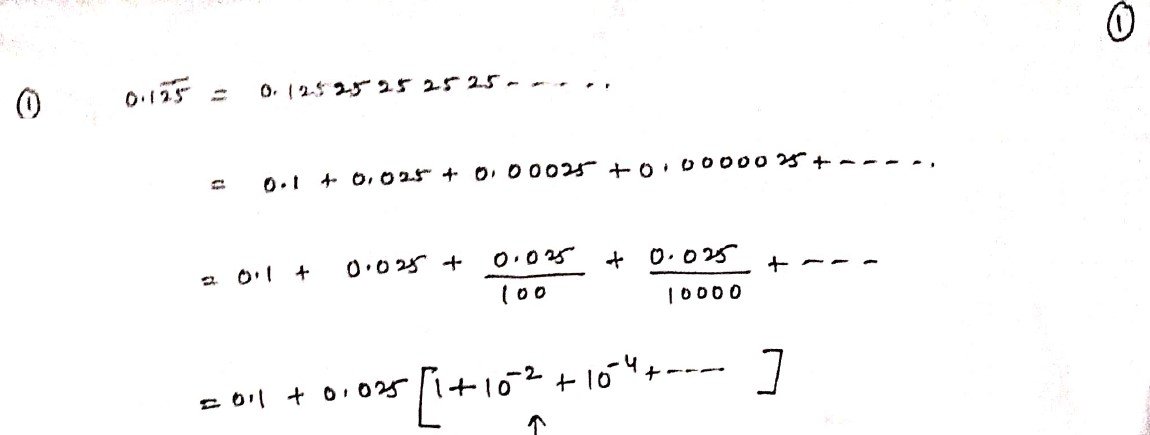 ①
① 0.12̅5̅ = 0.1252525 2525-----..
= 0.1 + 0.025 + 0.00025 + 0.0000025 + -----.
= 0.1 + 0.025 + 0.025/100 + 0.025/10000 + ---
= 0.1 + 0.025 [1 + 10⁻² + 10⁻⁴ + ---- ]
↑